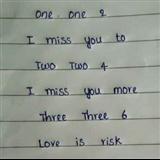 One one 2
I miss you to
Two Two 4
I miss you more
Three Three 6
Love is risk